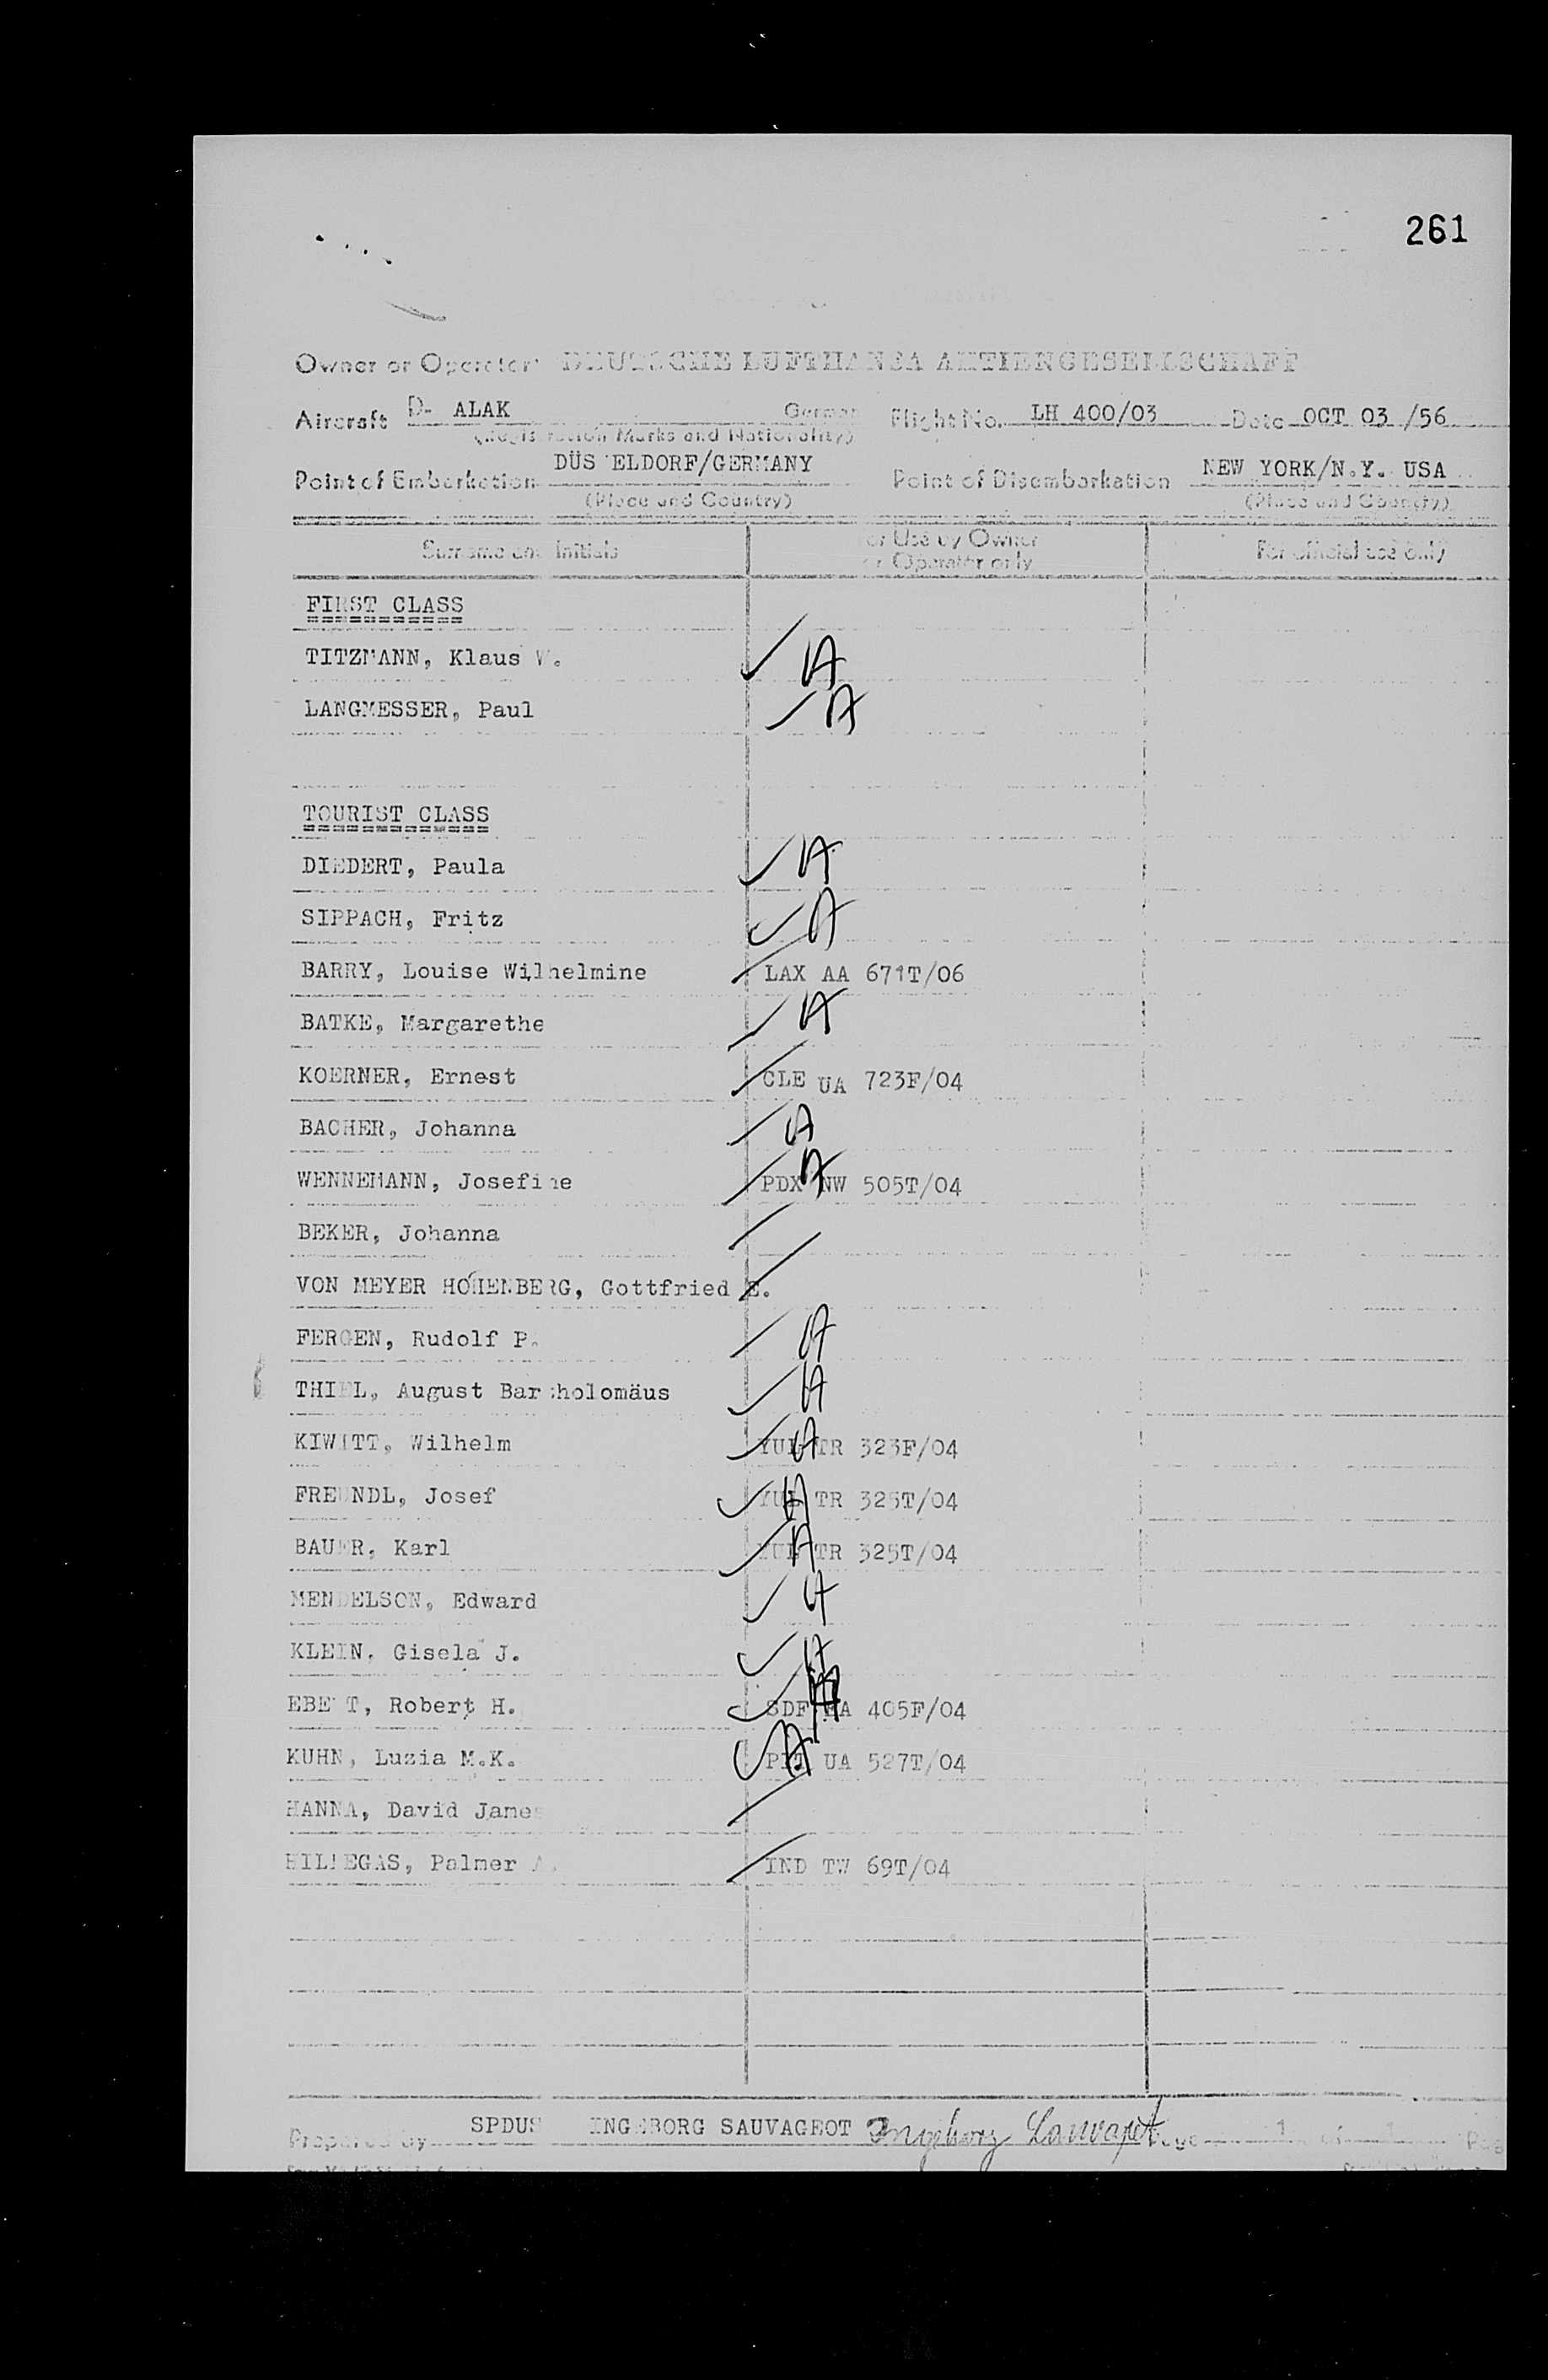 261
Owner or Operator: DEUTSCHE LUFTHANSA AKTIENGESELLSCHAFT
Aircraft D- ALAK German Flight No. LH 400/03 Date OCT 03 /56
(Registration Marks and Nationality)
Point of Embarkation DÜSSELDORF/GERMANY Point of Disembarkation NEW YORK/N.Y. USA
(Place and Country) (Place and Country)
Surname and Initials For Use by Owner or Operator only For official use only
FIRST CLASS
===========
TITZMANN, Klaus W. A
LANGMESSER, Paul A
TOURIST CLASS
=============
DIEDERT, Paula A
SIPPACH, Fritz A
BARRY, Louise Wilhelmine LAX AA 671T/06
BATKE, Margarethe A
KOERNER, Ernest CLE UA 723F/04
BACHER, Johanna A
WENNEMANN, Josefine PDX NW 505T/04 A
BEKER, Johanna
VON MEYER HOHENBERG, Gottfried E.
FERGEN, Rudolf P. A
THIEL, August Bartholomäus A
KIWITT, Wilhelm YUL TR 323F/04 A
FREUNDL, Josef YUL TR 325T/04 A
BAUER, Karl YUL TR 325T/04 A
MENDELSON, Edward A
KLEIN, Gisela J. A
EBERT, Robert H. SDF 405F/04
KUHN, Luzia M.K. PIT UA 527T/04 A
HANNA, David James
HILLEGAS, Palmer A. IND TW 69T/04
Prepared by SPDUS INGEBORG SAUVAGEOT Ingeborg Sauvageot Page 1 of 1